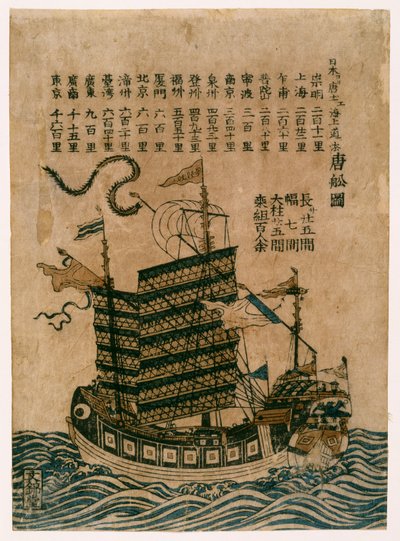 日本ヨリ唐土エ海上道法
唐舩圖
崇明 二百十二里
上海 二百廿二里
乍甫 二百六十里
普陀山 二百八十里
寧波 三百里
南京 三百四十里
泉州 四百九十三里
登州 四百九十三里
福州 五百五十里
厦門 六百里
北京 六百里
漳州 六百三十里
臺湾 六百四十里
廣東 九百里
廣南 千十五里
東京 千六百里
長サ廿五間
幅 七間
大柱十五間
乗組百人余